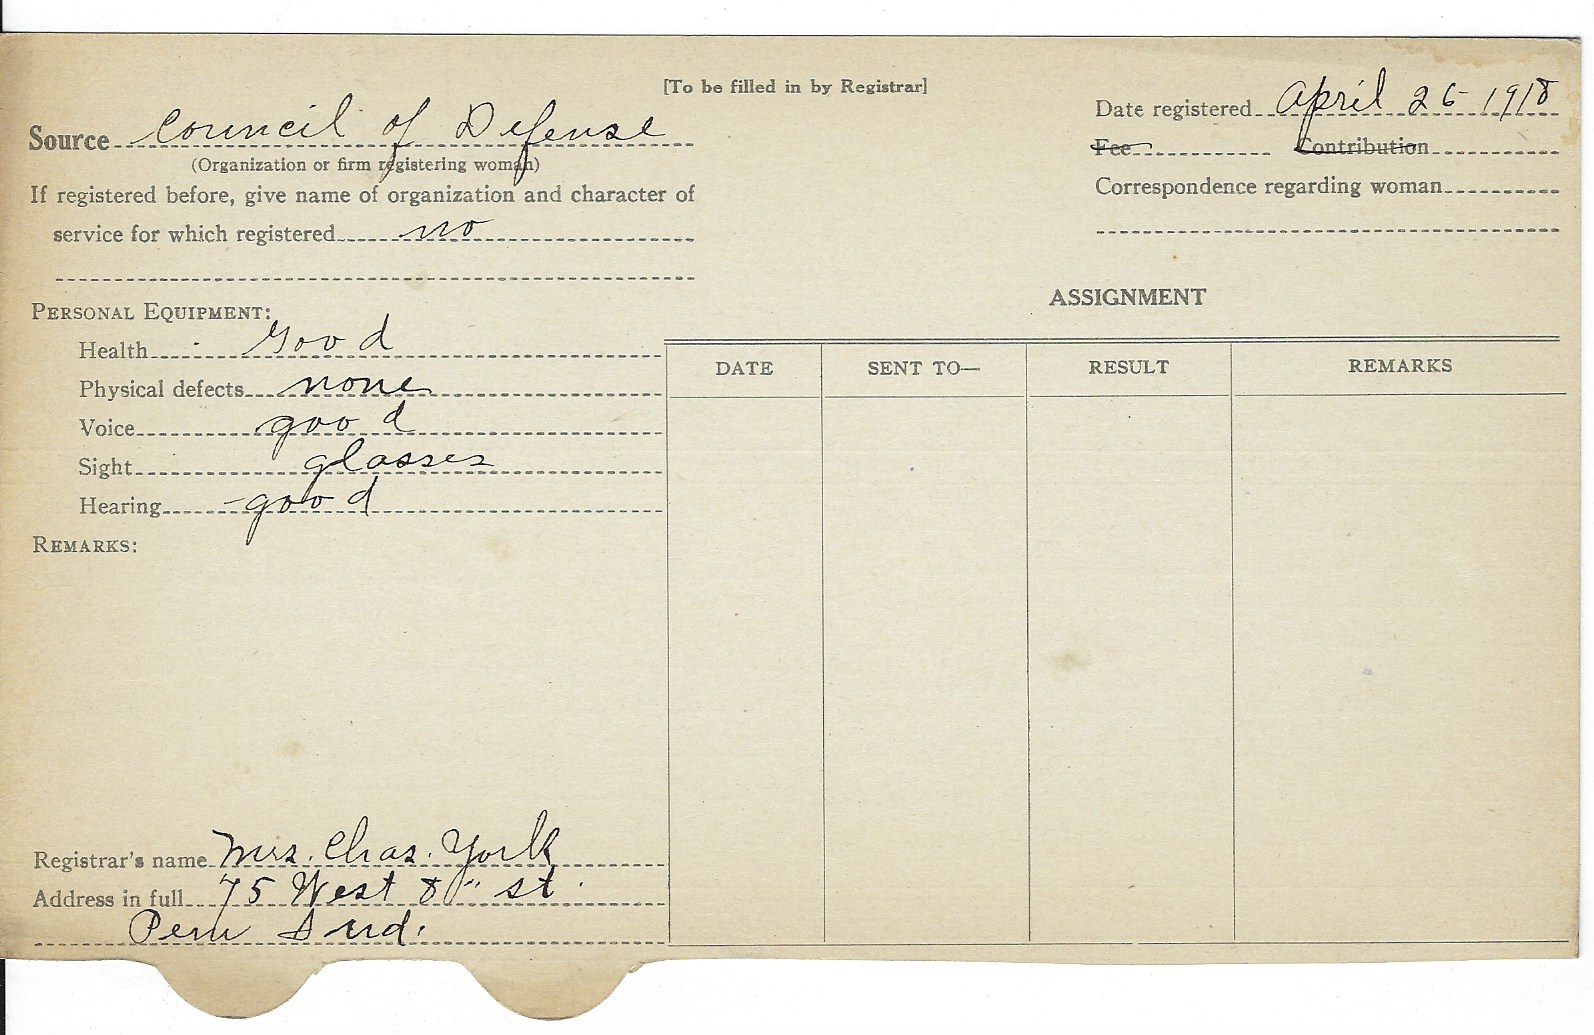 [To be filled in by Registrar]
Source Council of Defense
(Organization or firm registering woman)
If registered before, give name of organization and character of
service for which registered no
Date registered April 26 1918
Fee Contribution
Correspondence regarding woman
PERSONAL EQUIPMENT:
Health Good
Physical defects none
Voice good
Sight glasses
Hearing good
REMARKS:
ASSIGNMENT
DATE SENT TO— RESULT REMARKS
Registrar's name Mrs. Chas. York
Address in full 75 West 8" st.
Peru Ind.